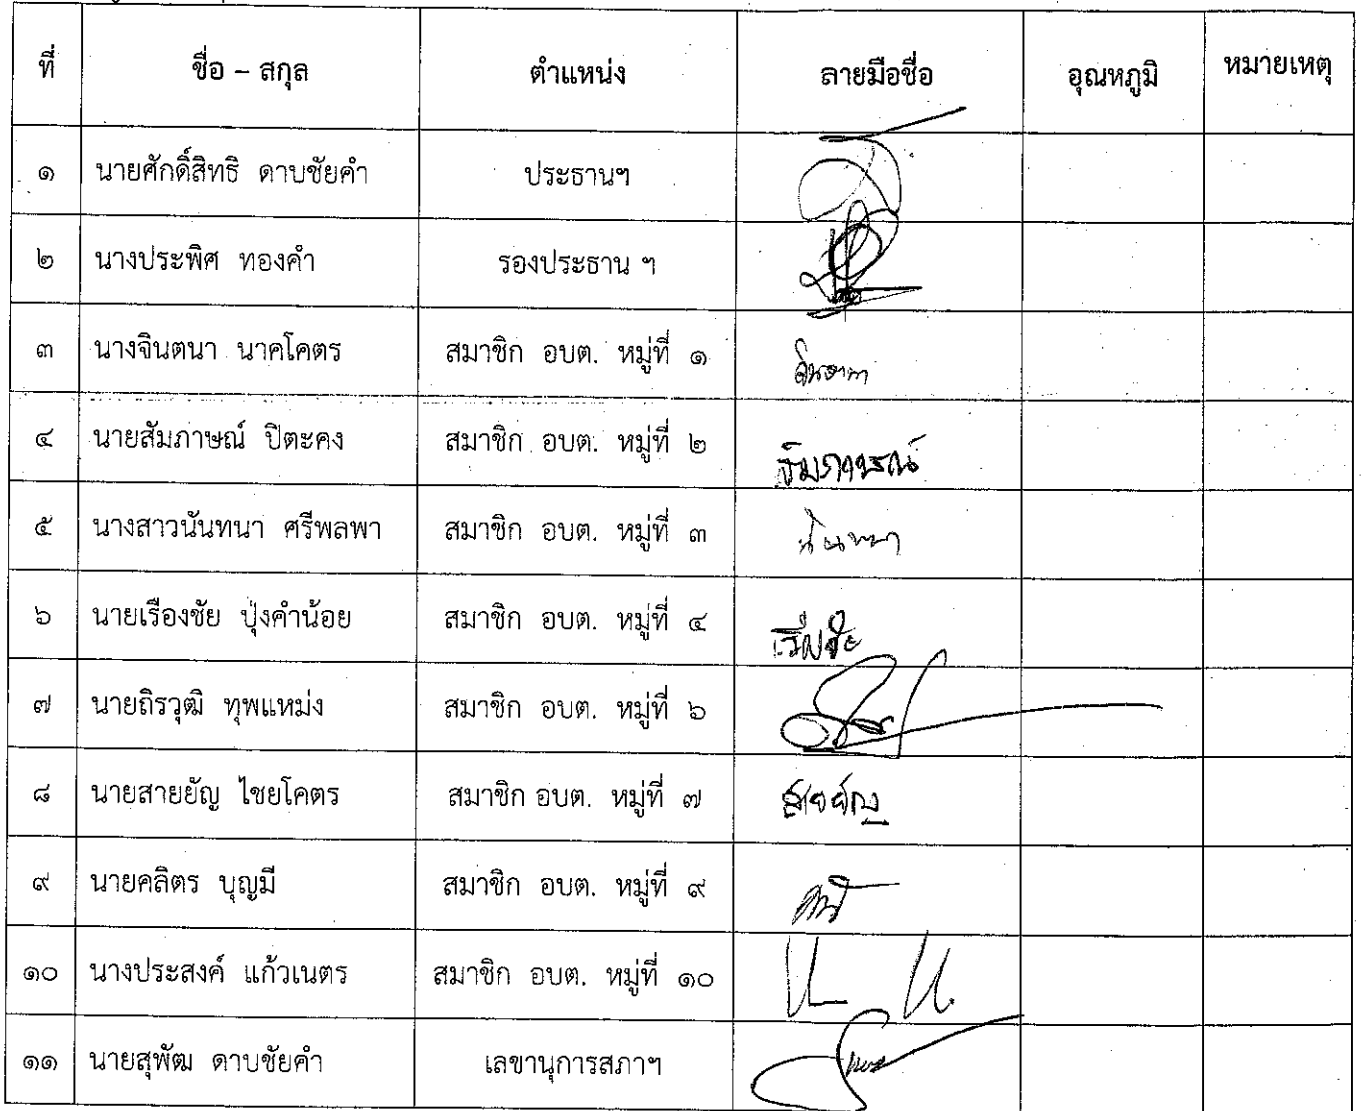 ที่ ชื่อ – สกุล ตำแหน่ง ลายมือชื่อ อุณหภูมิ หมายเหตุ
๑ นายศักดิ์สิทธิ ดาบชัยคำ ประธานฯ
๒ นางประพิศ ทองคำ รองประธาน ฯ
๓ นางจินตนา นาคโคตร สมาชิก อบต. หมู่ที่ ๑ จินตนา
๔ นายสัมภาษณ์ ปิตะคง สมาชิก อบต. หมู่ที่ ๒ สัมภาษณ์
๕ นางสาวนันทนา ศรีพลพา สมาชิก อบต. หมู่ที่ ๓ นันทนา
๖ นายเรืองชัย ปุ่งคำน้อย สมาชิก อบต. หมู่ที่ ๔ เรืองชัย
๗ นายถิรวุฒิ ทุพแหม่ง สมาชิก อบต. หมู่ที่ ๖
๘ นายสายยัญ ไชยโคตร สมาชิก อบต. หมู่ที่ ๗ สายยัญ
๙ นายคลิตร บุญมี สมาชิก อบต. หมู่ที่ ๙
๑๐ นางประสงค์ แก้วเนตร สมาชิก อบต. หมู่ที่ ๑๐
๑๑ นายสุพัฒ ดาบชัยคำ เลขานุการสภาฯ